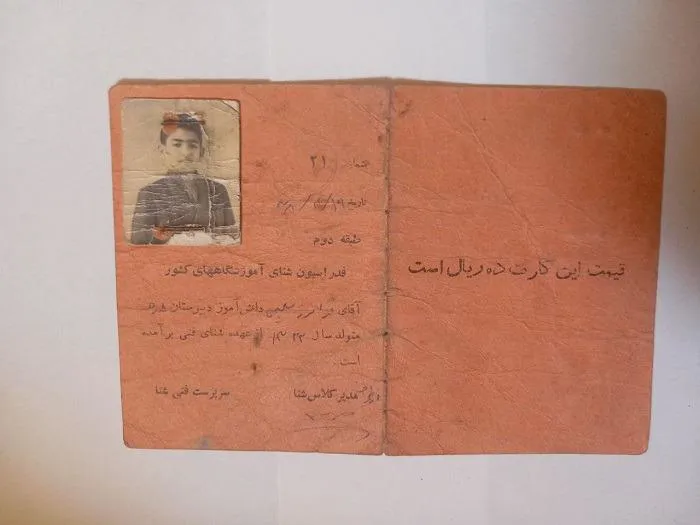 شماره ۲۱
تاریخ
طبقه دوم
فدراسیون شنای آموزشگاههای کشور
آقای دانش آموز دبیرستان
متولد سال ۱۳۲۳ از عهده شنای فنی برآمده
است
مدیر کلاس شنا سرپرست فنی شنا
قیمت این کارت ده ریال است